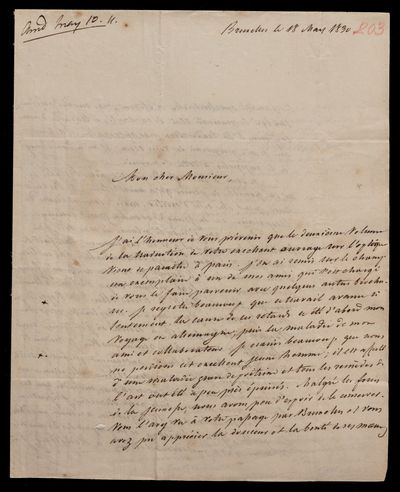 Bruxelles le 18 Mars 1830
203
Mon cher Monsieur,
J'ai l'honneur de vous prévenir que le deuxième Volume
de la traduction de votre excellent ouvrage sur l'optique
vient de paraître à paris. J'en ai remis sur le champ
un exemplaire à un de mes amis qui s'est chargé
de vous le faire parvenir, avec quelques autres brochu-
res. Je regrette beaucoup que ce travail avance si
lentement. La cause de ce retard a été d'abord mon
voyage en allemagne, puis la maladie de mon
ami et collaborateur. Je crains beaucoup que nous
ne perdions cet excellent jeune homme; il est affecté
d'une maladie grave de poitrine et tous les remèdes de
l'art ont été à peu près épuisés. Malgré les forces
de la jeunesse, nous avons peu d'espoir de le conserver.
Vous l'avez vu à votre passage par Bruxelles et vous
avez pu apprécier la douceur et la bonté de ses mœurs